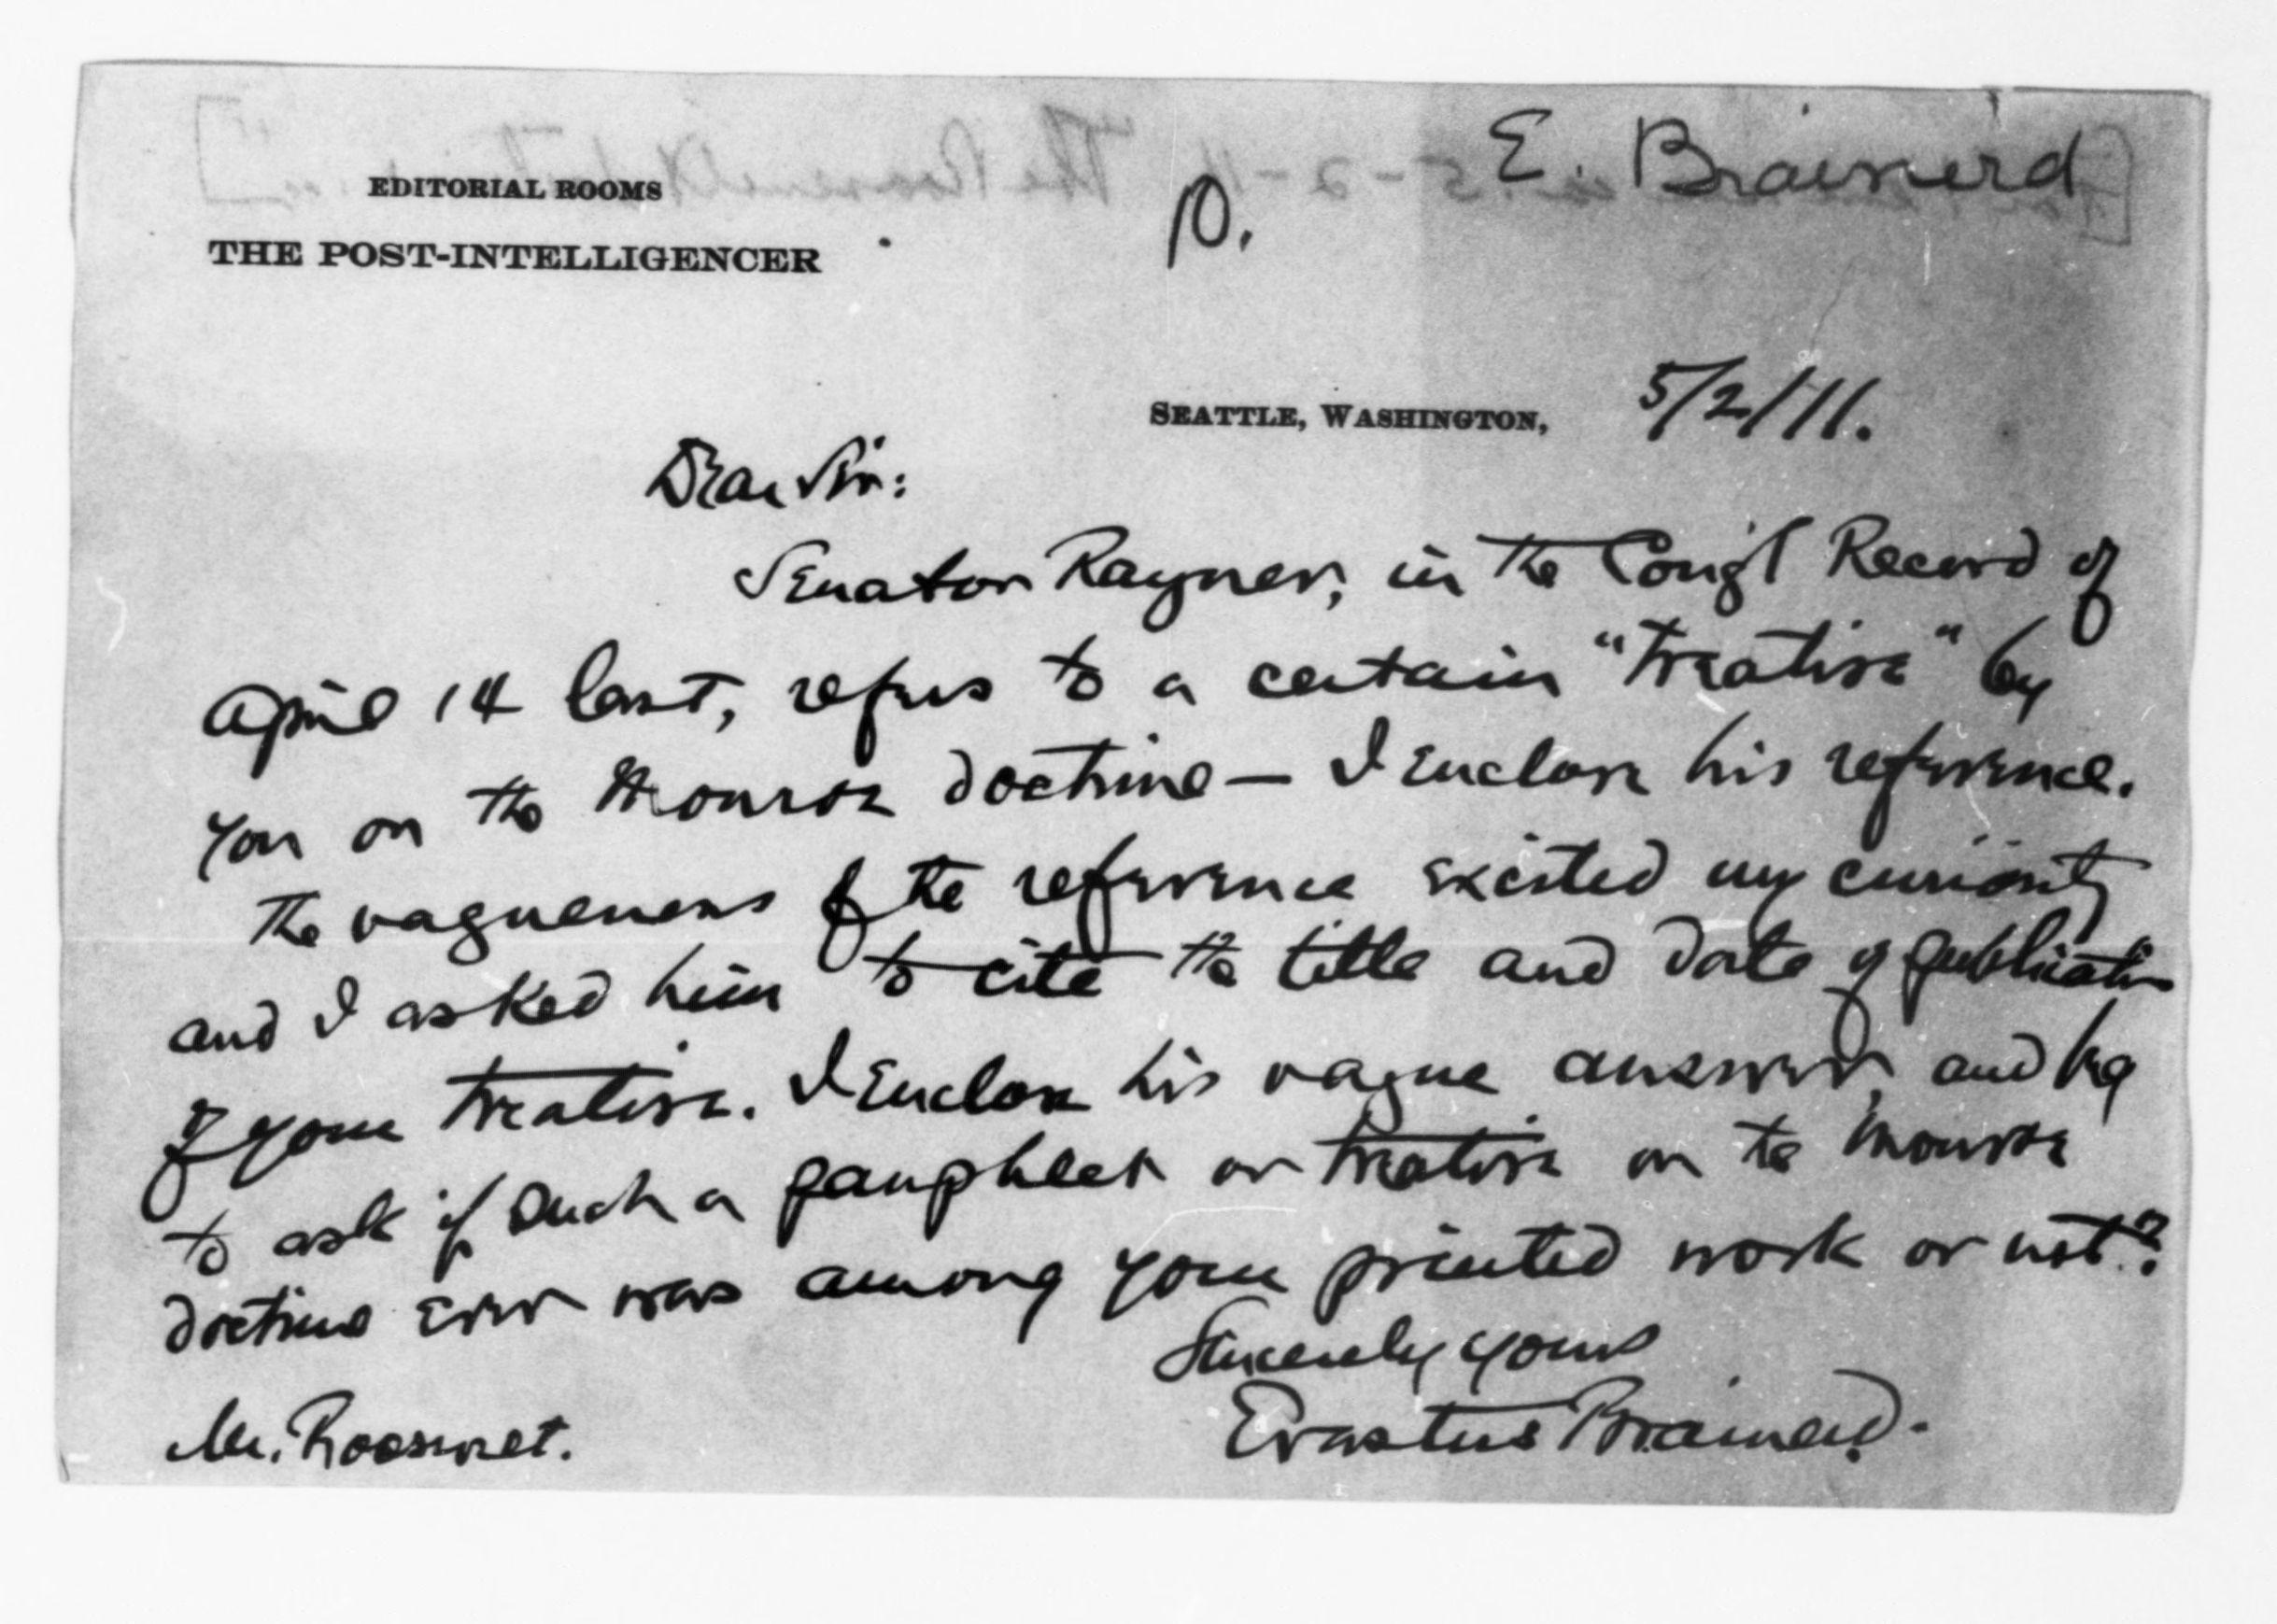 E. Brainerd
EDITORIAL ROOMS
THE POST-INTELLIGENCER
SEATTLE, WASHINGTON, 5/2/11.
Dear Sir:
Senator Rayner, in the Cong'l Record of
April 14 last, refers to a certain "treatise" by
you on the Monroe doctrine — I enclose his reference.
The vagueness of the reference excited my curiosity
and I asked him to cite the title and date of publication
of your treatise. I enclose his vague answer, and beg
to ask if such a pamphlet or treatise on the Monroe
doctrine ever was among your printed work or not?
Sincerely yours
Erastus Brainerd.
Mr. Roosevelt.